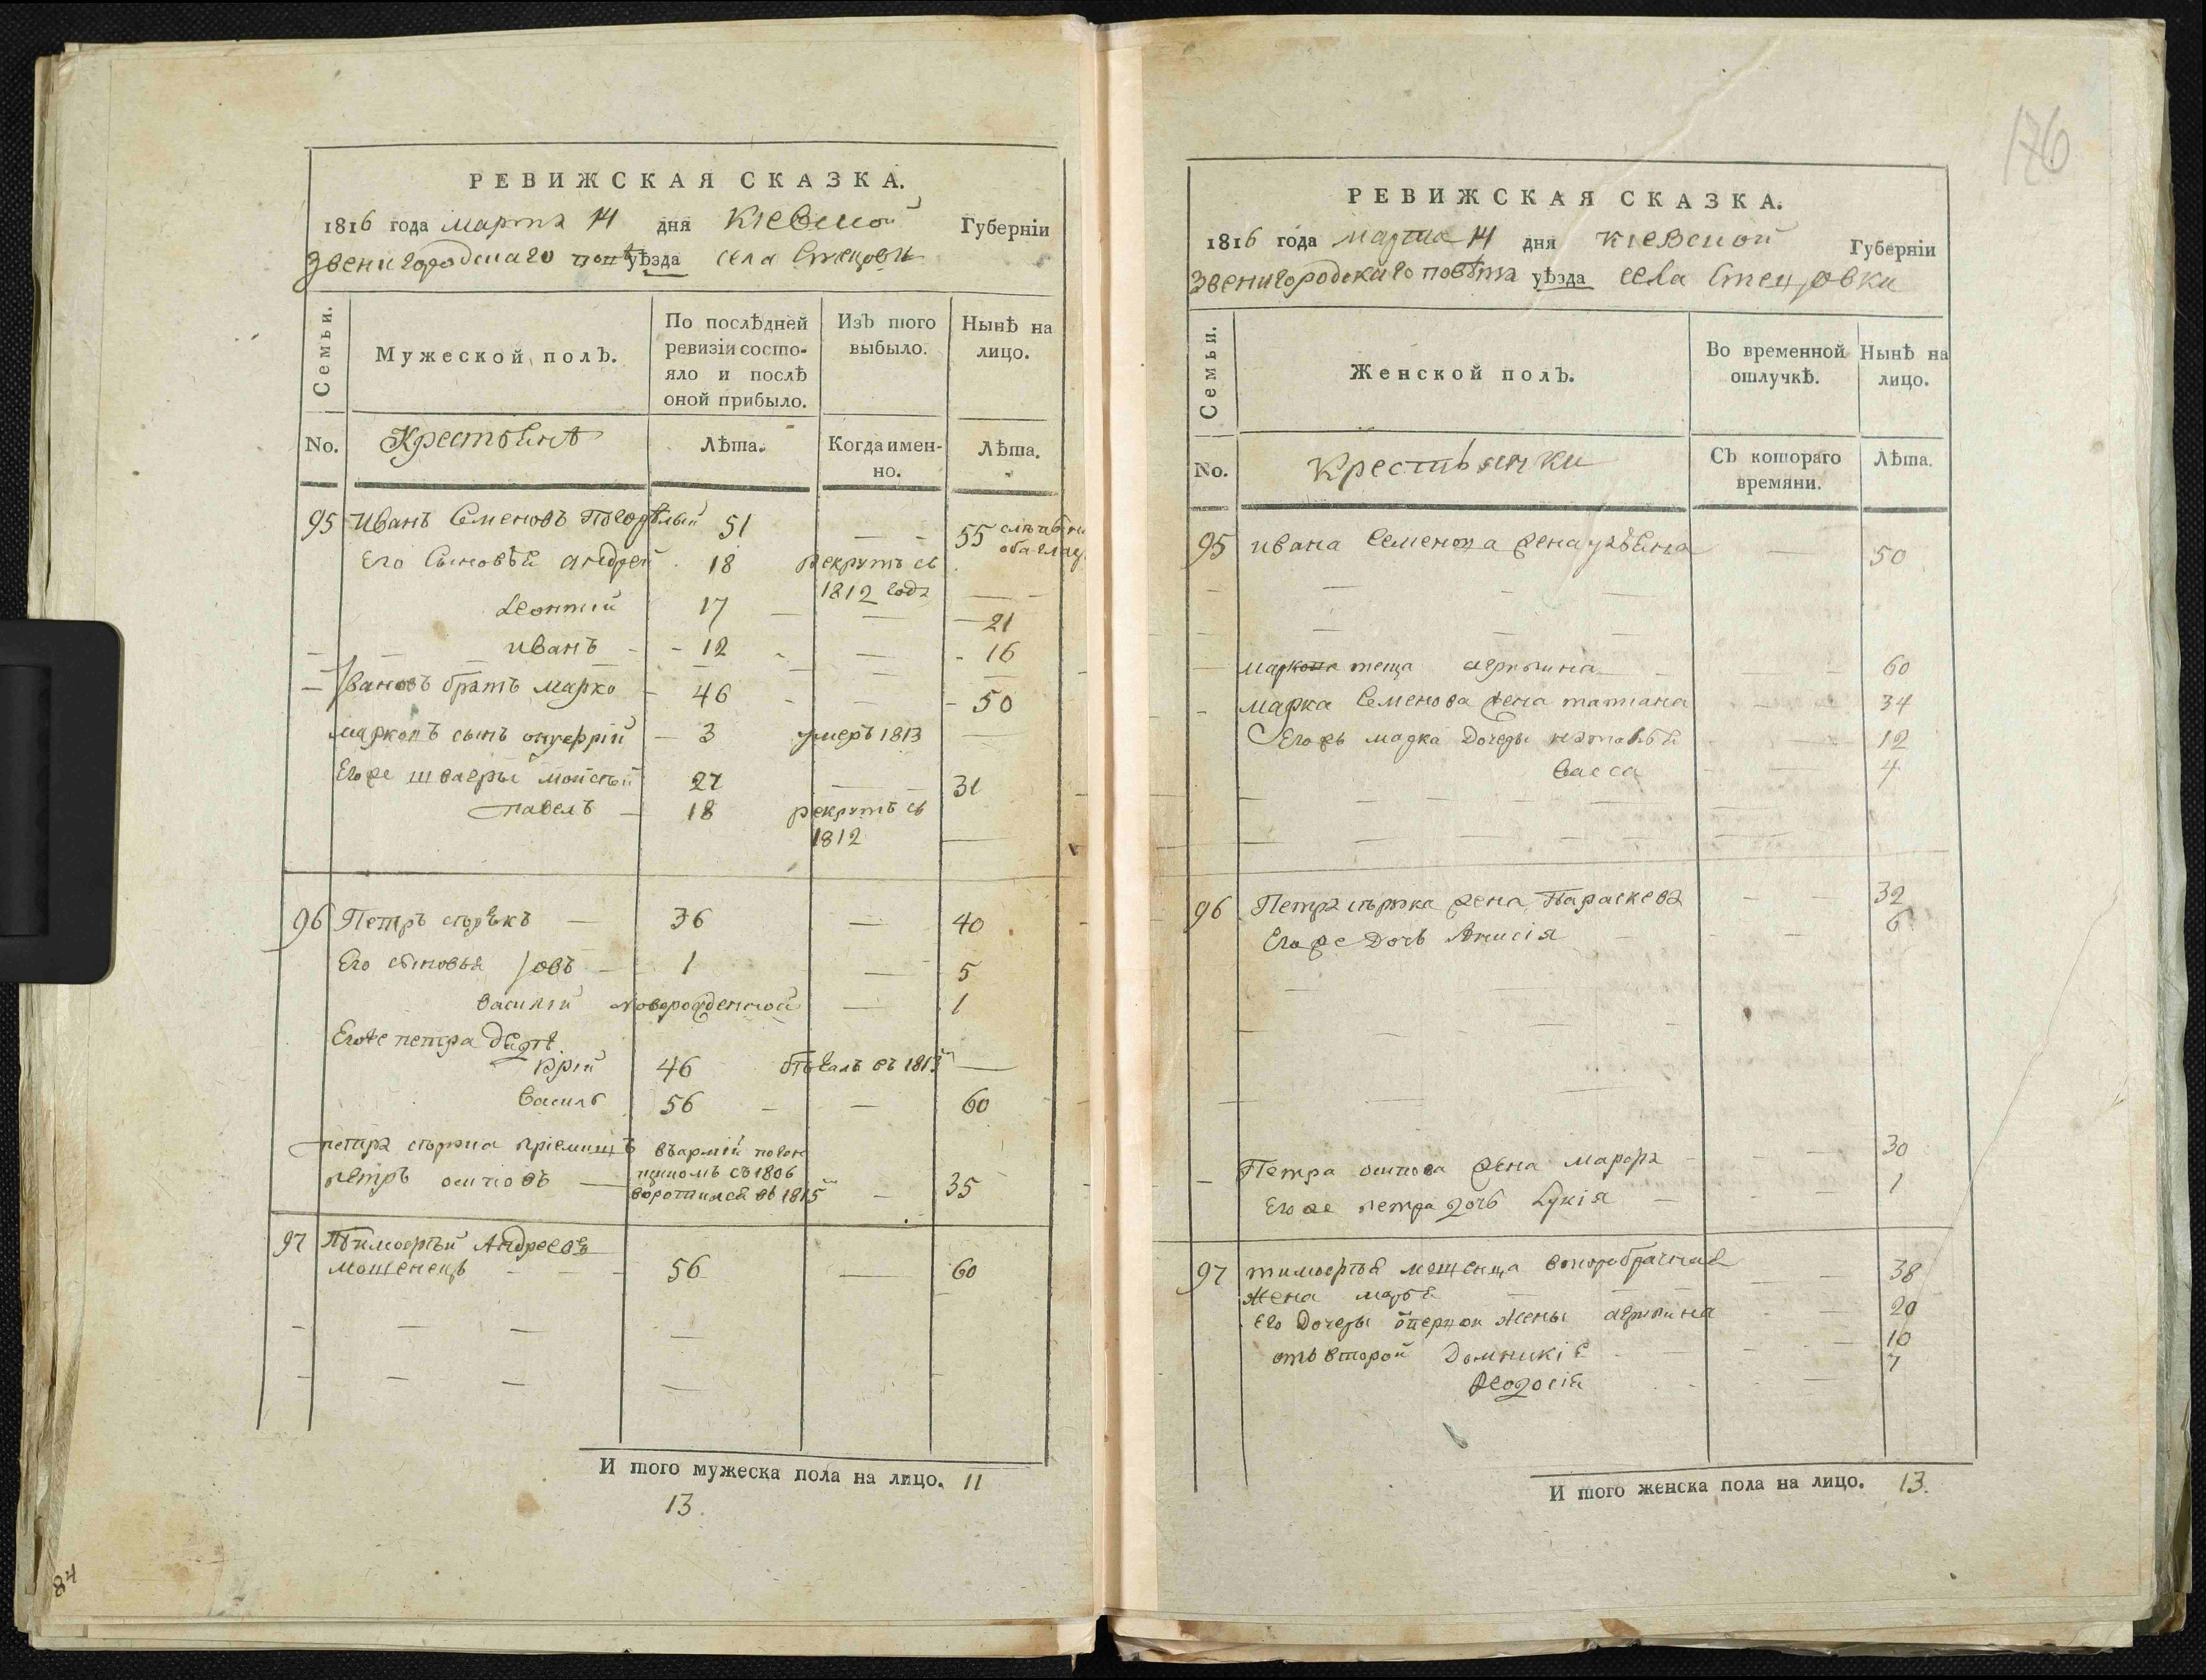 РЕВИЖСКАЯ СКАЗКА.
1816 года марта 14 дня Кіевской Губерніи
Звенигородскаго повѣ уѣзда села Стецовки
Семьи.
Мужеской полъ.
По послѣдней ревизіи состояло и послѣ оной прибыло.
Изъ того выбыло.
Нынѣ на лицо.
No.
Лѣта.
Когда именно.
Лѣта.
95 Иванъ Семеновъ Погорѣлый 51 — 55 слѣпъ на оба
Его Сыновья Андрей 18 рекрутъ съ 1812 года —
Леонтій 17 — 21
Иванъ 12 — 16
Ивановъ братъ Марко 46 — 50
Марковъ сынъ онуфрій 3 умеръ 1813 —
Егоже швагры Мойсѣй 27 — 31
павелъ 18 рекрутъ съ 1812 —
96 Петръ 36 — 40
Его сыновья Іовъ 1 — 5
Василій новорожденной — 1
Егоже петра
Юрій 46 бѣжалъ въ 1813 —
Василь 56 — 60
петра пріемышъ въ арміи
петръ осиповъ съ 1806
воротился въ 1815 — 35
97 Тимофѣй Андреевъ
мошенецъ 56 — 60
И того мужеска пола на лицо. 11
13.
84
176
РЕВИЖСКАЯ СКАЗКА.
1816 года марта 14 дня Кіевской Губерніи
Звенигородскаго повѣта уѣзда села Стецовки
Семьи.
Женской полъ.
Во временной отлучкѣ.
Нынѣ на лицо.
No.
Крестьянки
Съ котораго времяни.
Лѣта.
95 Ивана Семенова жена ульяна — 50
теща агрипина — 60
марка Семенова жена татіана — 34
Егожъ марка Дочеры наталья — 12
Васса — 4
96 Петра жена Параскева 32
Егоже Дочь Анисія 6
Петра осипова жена марфа 30
Егоже петра дочь Лукія 1
97 тимофѣя мошенца второбрачная
жена марья 38
Его Дочеры отъ первой жены агрипина 20
отъ второй Домникія 10
Феодосія 7
И того женска пола на лицо. 13.